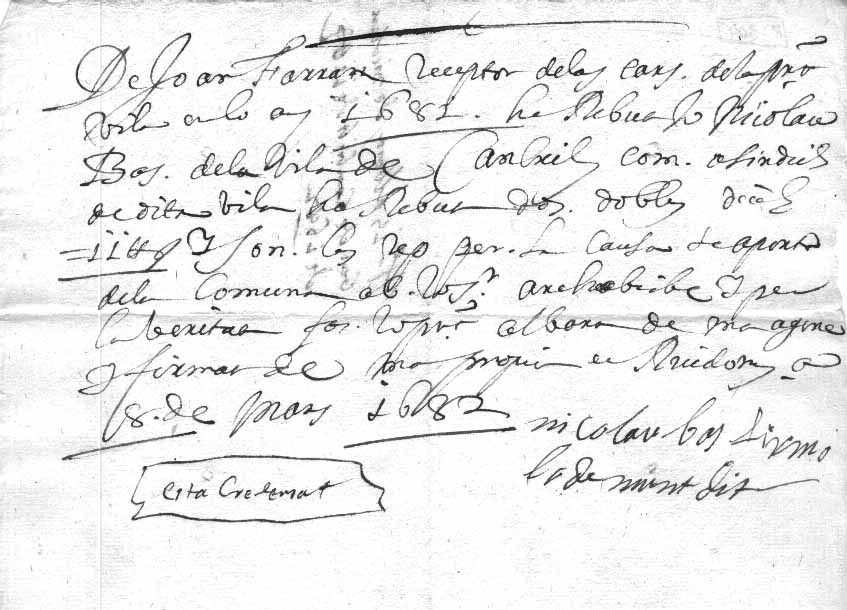 De Joan Farran receptor delas cars. dela pnt
vila en lo an 1681. he Rebut Jo Nicolau
Bos. dela Vila de Cambrils com. a sindich
de dita vila he Rebut dos. dobles
= 11 ll y son. los rep per. la causa de aporta
dela Comuna ab. los. archebisbe y per
la veritat fas. lo pnt albara de ma agena
y firmat de ma propia en Riudoms a
8. de mars 1682
nicolau bos firmo
lo demunt dit
esta Cresensat